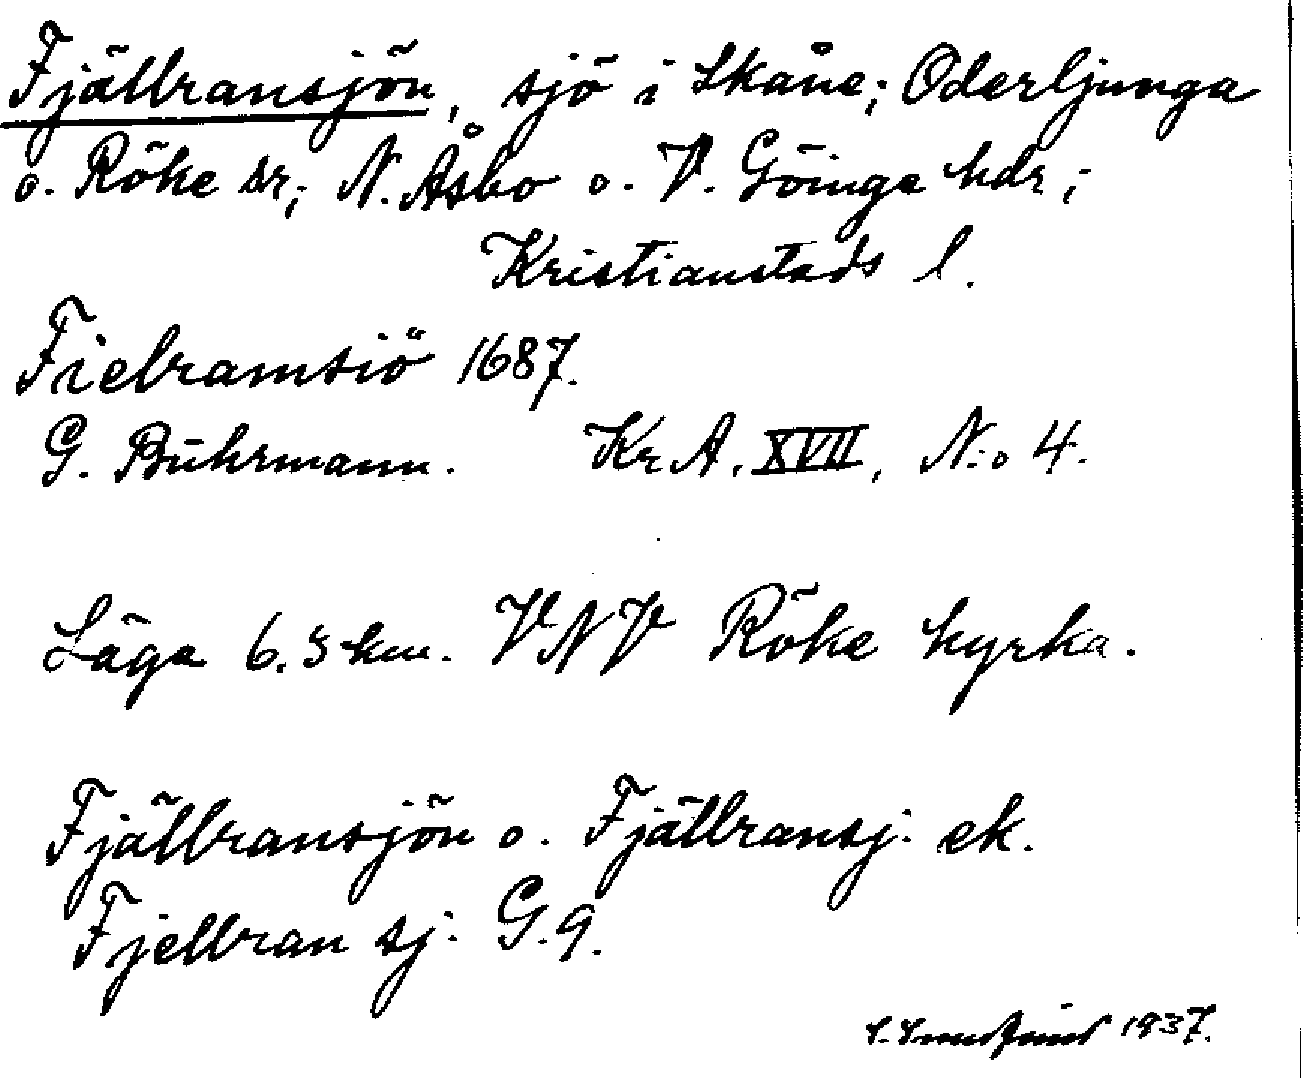 Fjällransjön, sjö i Skåne; Oderljunga
o. Röke sr; N. Åsbo o. V. Göinge hdr;
Kristianstads l.
Fielramsiö 1687.
G. Buhrmann. Kr A. XVII, N:o 4.
Läge 6.5 km. VNV Röke kyrka.
Fjällransjön o. Fjällransj: ek.
Fjellran sj: G.9.
1937.